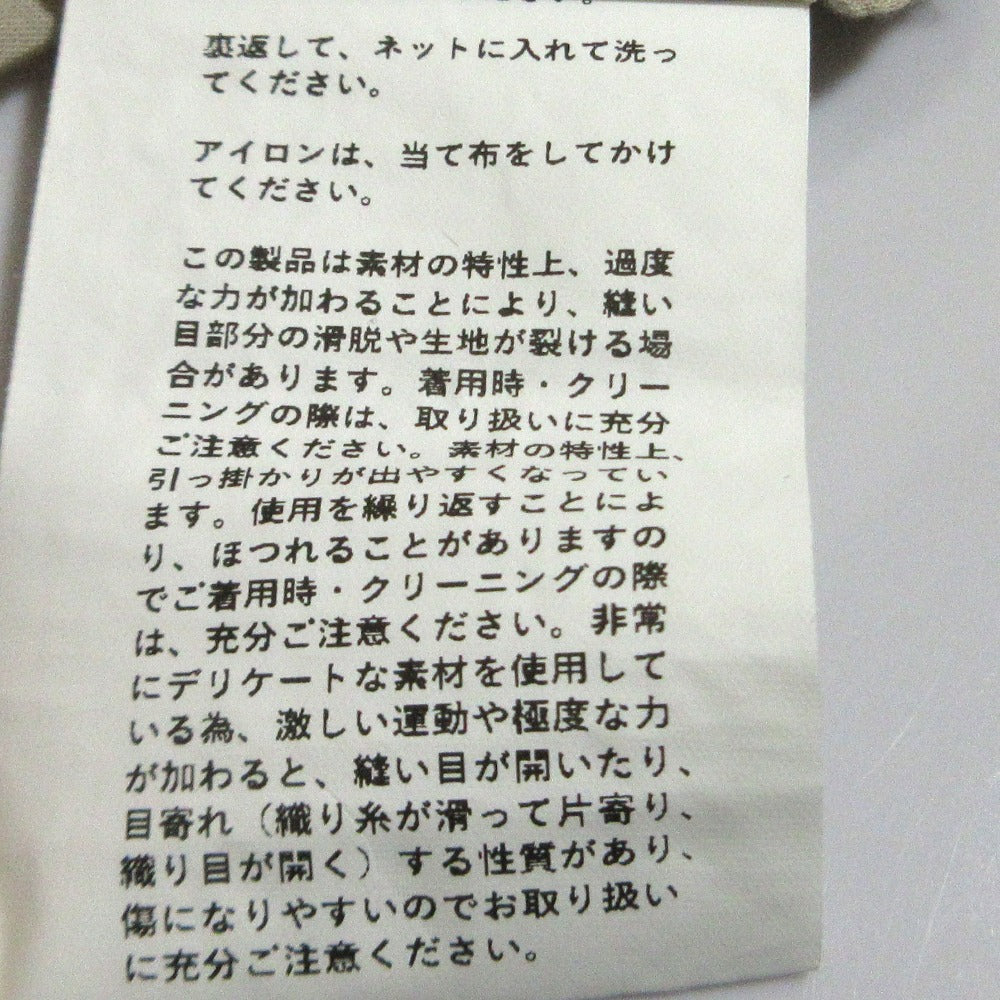 ださい。
裏返して、ネットに入れて洗っ
てください。
アイロンは、当て布をしてかけ
てください。
この製品は素材の特性上、過度
な力が加わることにより、縫い
目部分の滑脱や生地が裂ける場
合があります。着用時・クリー
ニングの際は、取り扱いに充分
ご注意ください。素材の特性上、
引っ掛かりが出やすくなってい
ます。使用を繰り返すことによ
り、ほつれることがありますの
でご着用時・クリーニングの際
は、充分ご注意ください。非常
にデリケートな素材を使用して
いる為、激しい運動や極度な力
が加わると、縫い目が開いたり、
目寄れ（織り糸が滑って片寄り、
織り目が開く）する性質があり、
傷になりやすいのでお取り扱い
に充分ご注意ください。